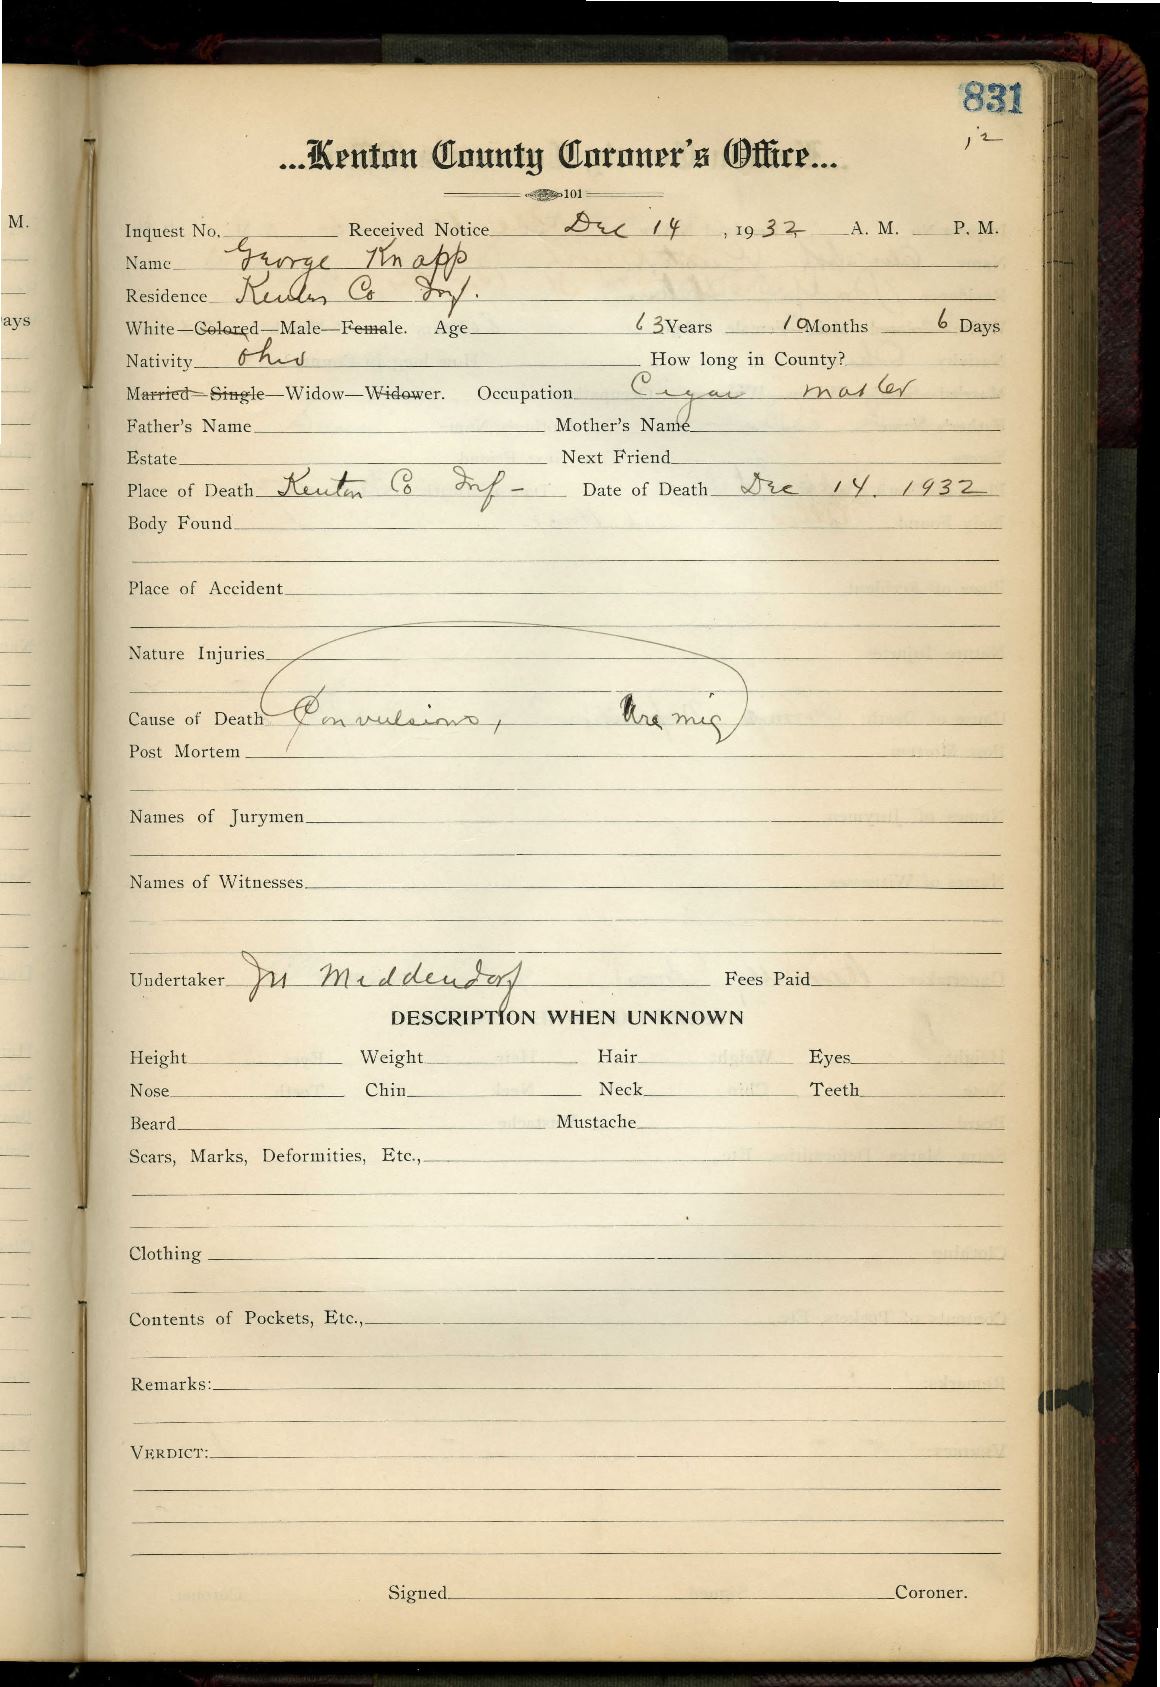 831
12
...Kenton County Coroner's Office...
101
M.
Inquest No. Received Notice Dec 14, 1932 A. M. P. M.
Name George Knapp
Residence Kenton Co Inf.
ays
White—Colored—Male—Female. Age 63 Years 10 Months 6 Days
Nativity Ohio How long in County?
Married—Single—Widow—Widower. Occupation Cigar maker
Father's Name Mother's Name
Estate Next Friend
Place of Death Kenton Co Inf- Date of Death Dec 14. 1932
Body Found
Place of Accident
Nature Injuries
Cause of Death Convulsions, Uremig
Post Mortem
Names of Jurymen
Names of Witnesses
Undertaker Middendorf Fees Paid
DESCRIPTION WHEN UNKNOWN
Height Weight Hair Eyes
Nose Chin Neck Teeth
Beard Mustache
Scars, Marks, Deformities, Etc.,
Clothing
Contents of Pockets, Etc.,
Remarks:
VERDICT:
Signed Coroner.